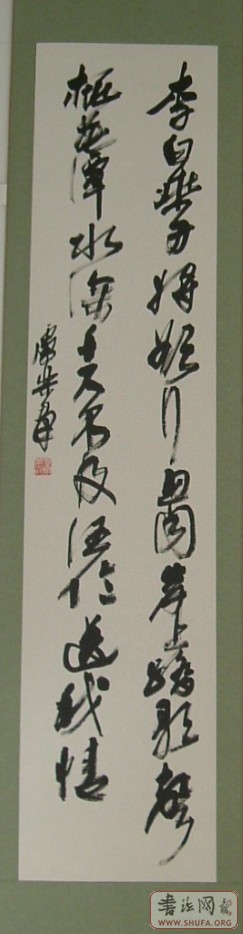 李白乘舟将欲行忽闻岸上踏歌声
桃花潭水深千尺不及汪伦送我情
书法网
WWW.SHUFA.ORG